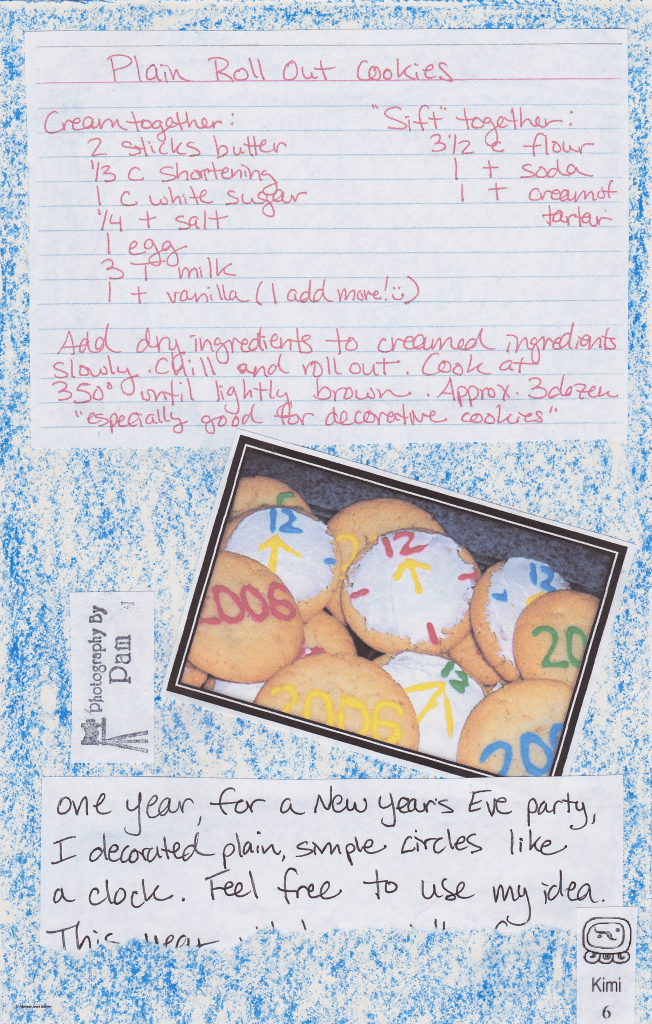 Plain Roll Out Cookies
Cream together:
2 sticks butter
1/3 c shortening
1 c white sugar
1/4 t salt
1 egg
3 T milk
1 t vanilla (I add more! :))
"Sift" together:
3 1/2 c flour
1 t soda
1 t cream of
tartar
Add dry ingredients to creamed ingredients
slowly. Chill and roll out. Cook at
350° until lightly brown. Approx. 3 dozen
"especially good for decorative cookies"
12
12
12
2006
20
2006
12
200
Photography By
Pam
one year, for a New Year's Eve party,
I decorated plain, simple circles like
a clock. Feel free to use my idea.
This year
Kimi
6